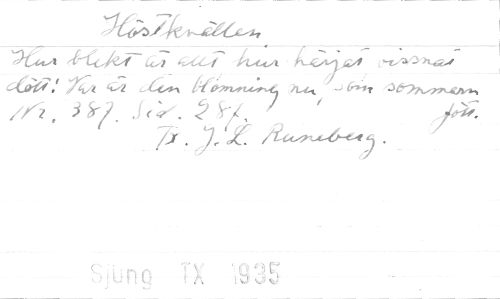 Höstkvällen
Hur blekt är allt hur härjat vissnat
dött! Var är din blomning nu, som sommarn
fött.
Nr. 387. Sid. 287.
Tx. J. L. Runeberg.
Sjung TX 1935